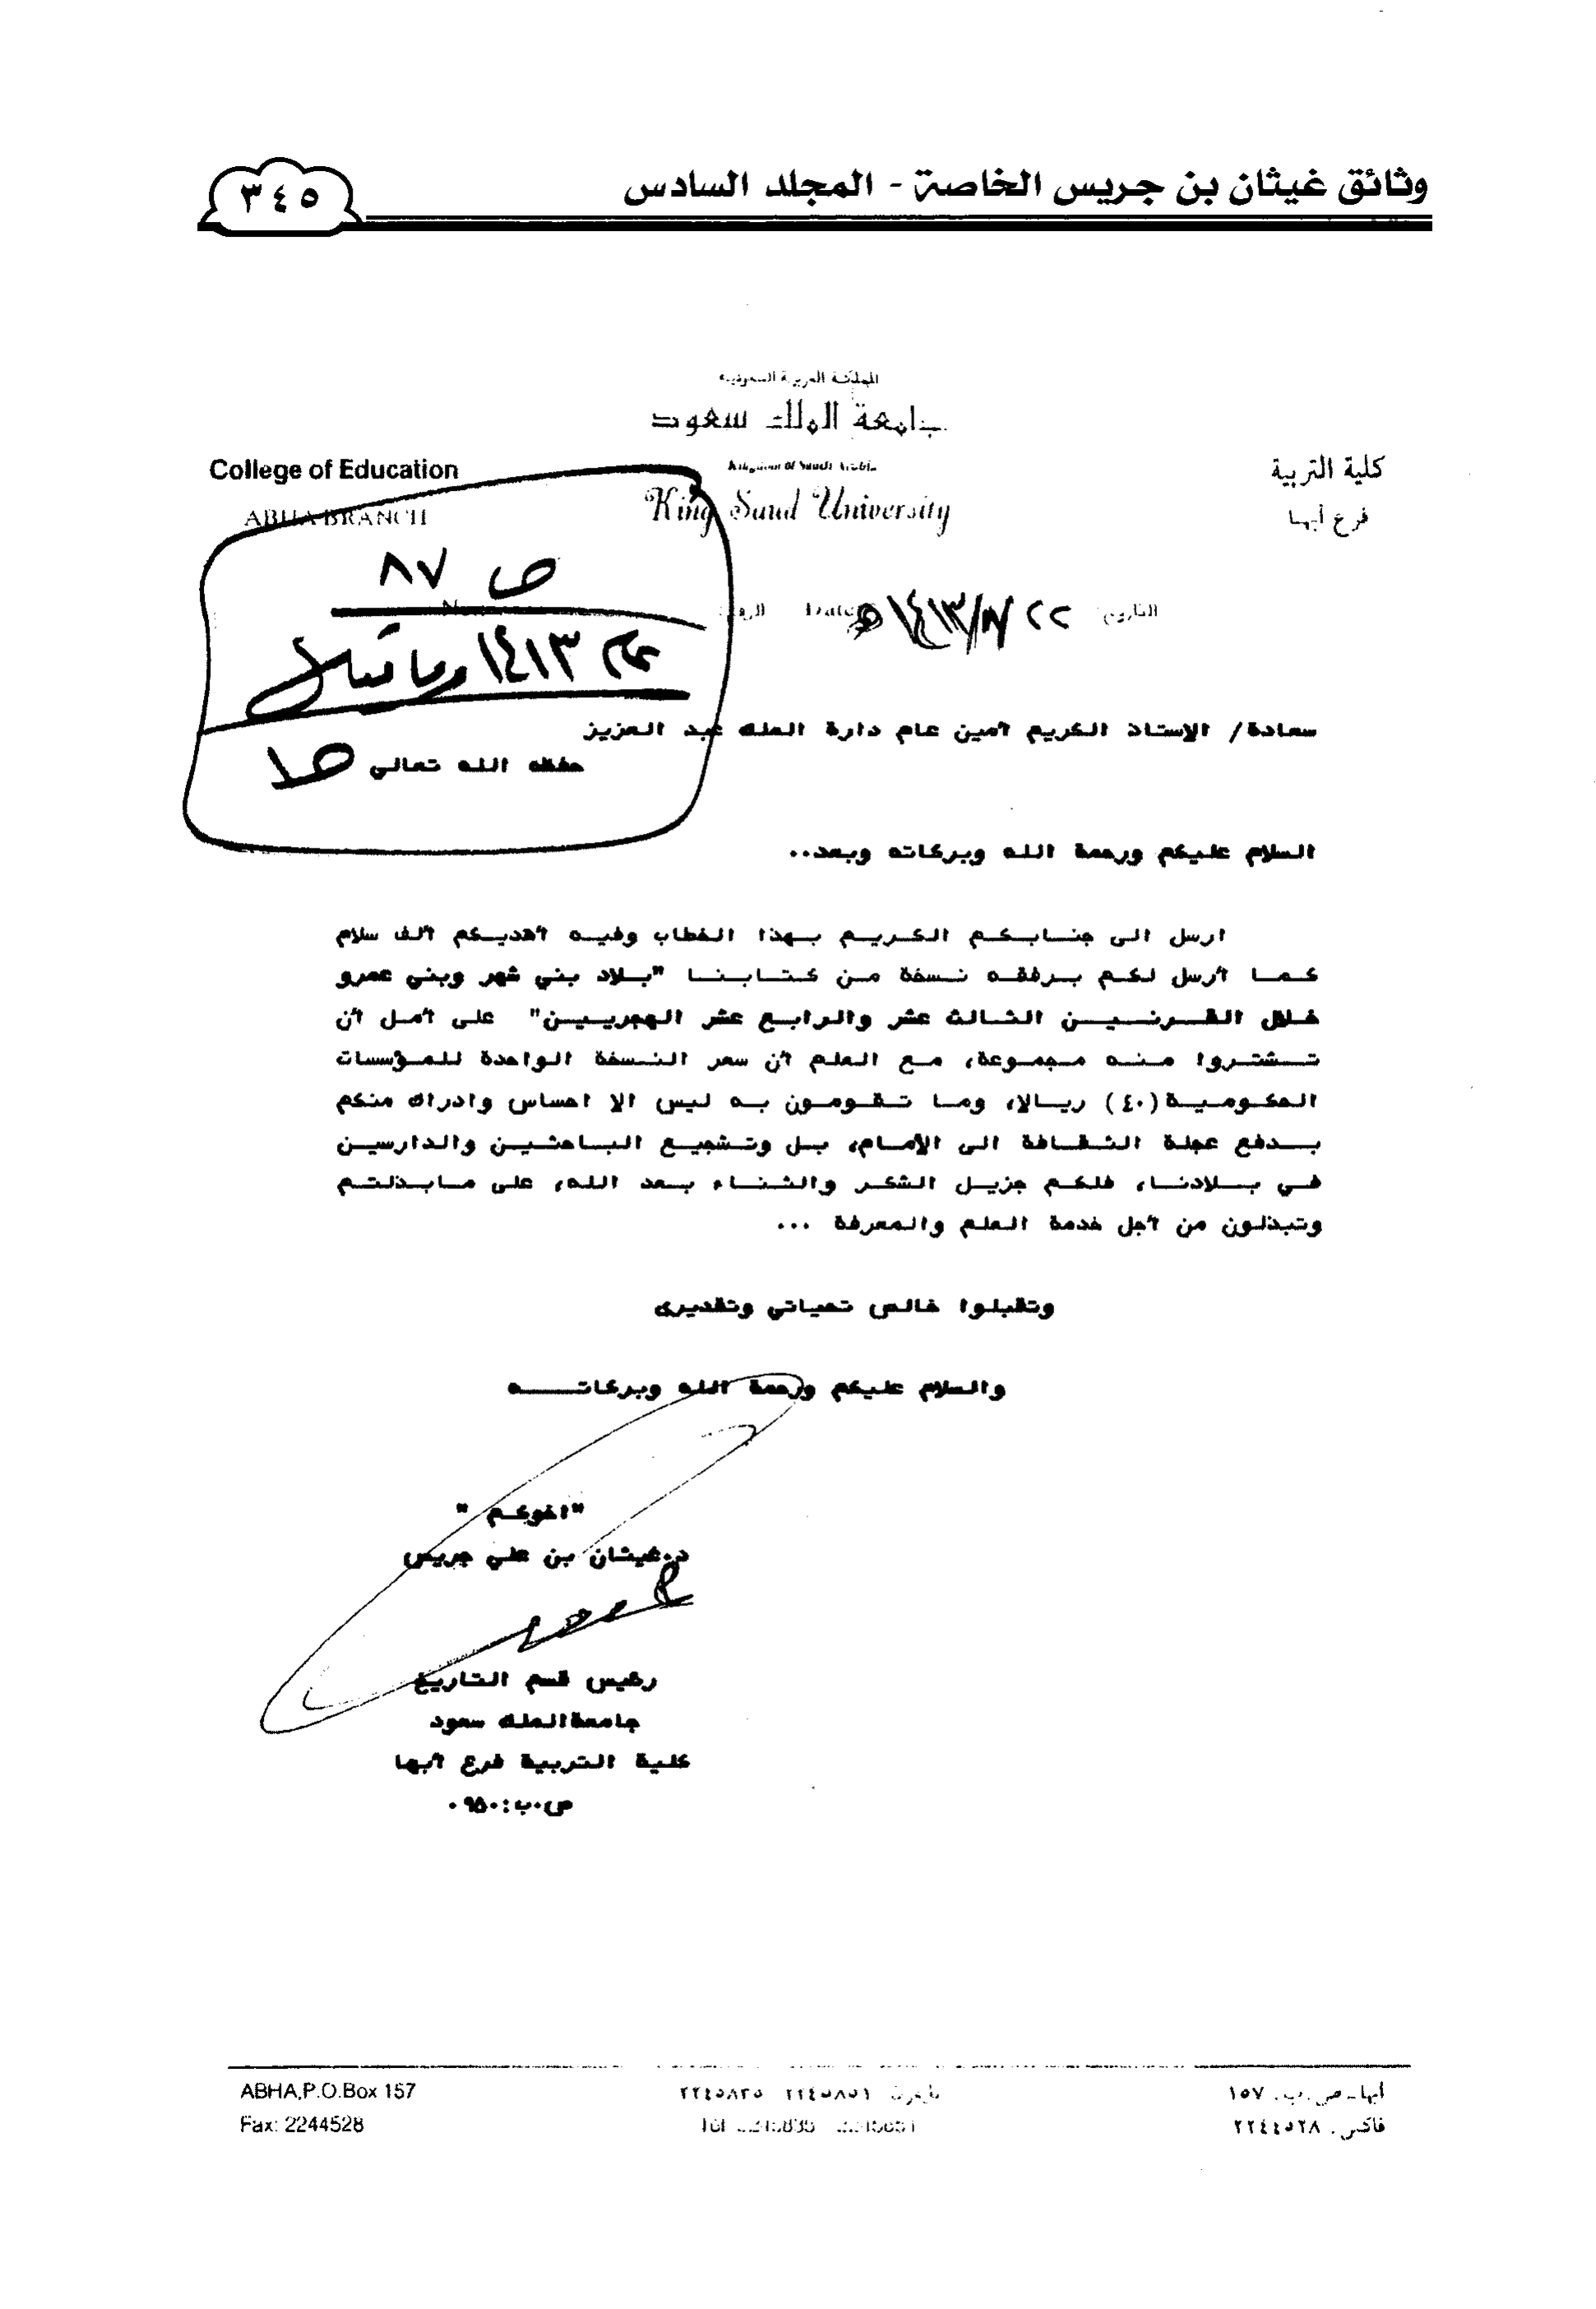 وثائق غيثان بن جريس الخاصة - المجلد السادس
٣٤٥
المملكة العربية السعودية
جامعة الملك سعود
Kingdom of Saudi Arabia
King Saud University
كلية التربية
فرع أبها
College of Education
ABHA BRANCH
التاريخ: ٢٢ /١٤١٣هـ Date الرقم
ص ٨٧
عام ١٤١٣ وما قبل
ص١
سعادة/ الاستاذ الكريم أمين عام دارة الملك عبد العزيز
حفظه الله تعالي
السلام عليكم ورحمة الله وبركاته وبعد..
ارسل الى جنابكم الكريم بهذا الخطاب وفيه أهديكم ألف سلام
كما أرسل لكم برفقه نسخة من كتابنا "بلاد بني شهر وبني عمرو
خلال القرنين الثالث عشر والرابع عشر الهجريين" على أمل أن
تشتروا منه مجموعة، مع العلم أن سعر النسخة الواحدة للمؤسسات
الحكومية (٤٠) ريالا، وما تقومون به ليس الا احساس وادراك منكم
بدفع عجلة الثقافة الى الأمام، بل وتشجيع الباحثين والدارسين
في بلادنا، فلكم جزيل الشكر والثناء بعد الله، على مابذلتم
وتبذلون من أجل خدمة العلم والمعرفة ...
وتقبلوا خالص تحياتي وتقديرى
والسلام عليكم ورحمة الله وبركاته
"اخوكم "
د.غيثان بن علي جريس
رئيس قسم التاريخ
جامعةالملك سعود
كلية التربية فرع أبها
ص.ب:٩٥٠٠
أبها - ص. ب. ١٥٧
فاكس. ٢٢٤٤٥٢٨
تليفون ٢٢٤٥٨٥١ ٢٢٤٥٨٣٥
Tel
ABHA,P.O.Box 157
Fax: 2244528